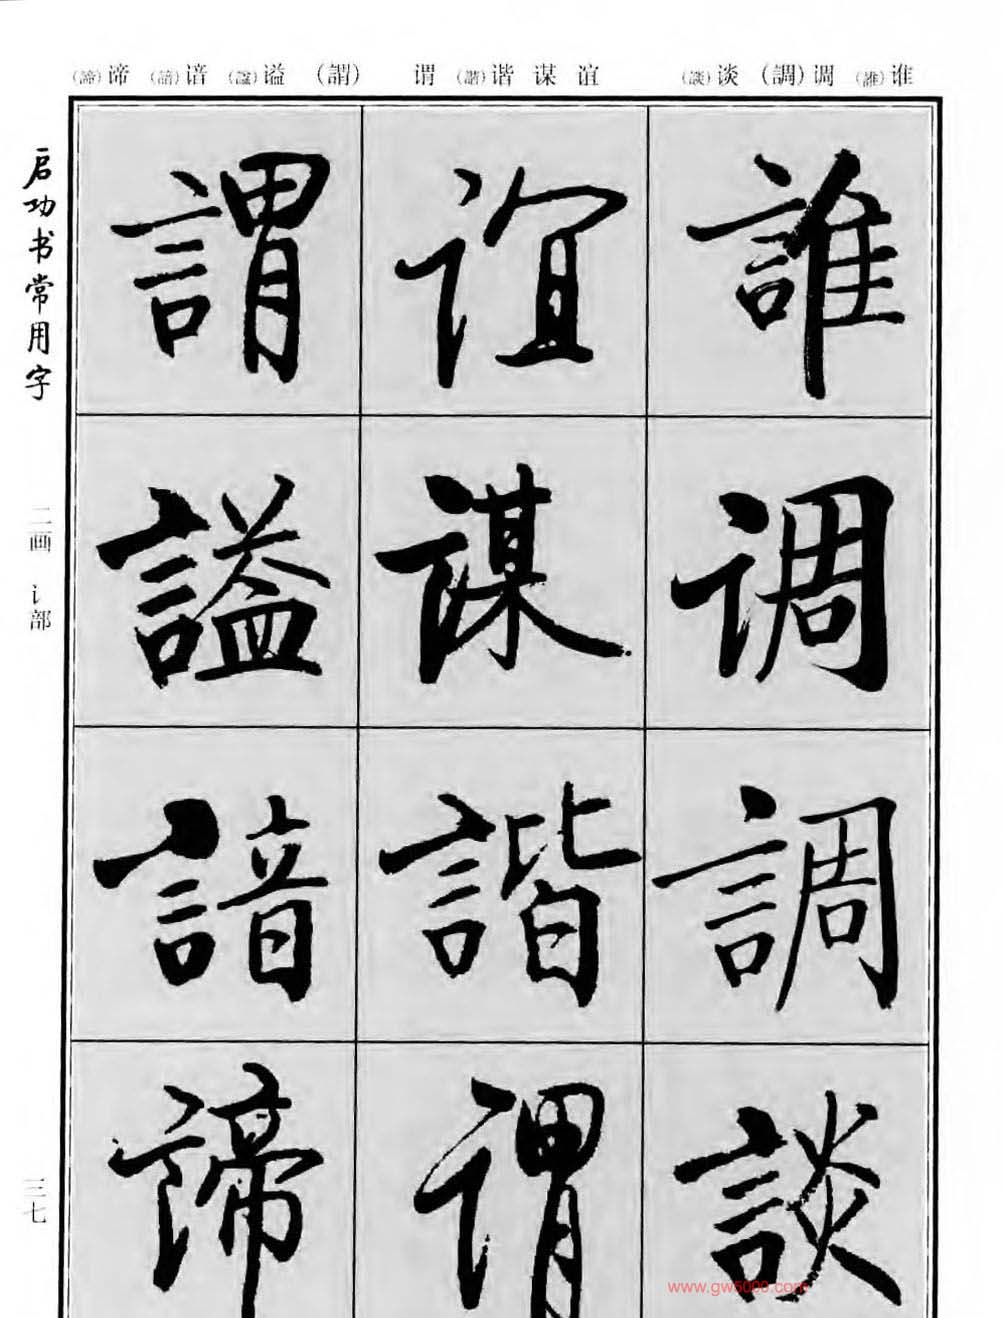 谁(誰) 调(調) 谈(談)
谊 谋 谐(諧) 谓
(謂) 谥(謚) 谙(諳) 谛(諦)
誰
调
調
談
谊
谋
諧
谓
謂
謚
諳
諦
启功书常用字
二画 讠部
三七
www.gw5000.com